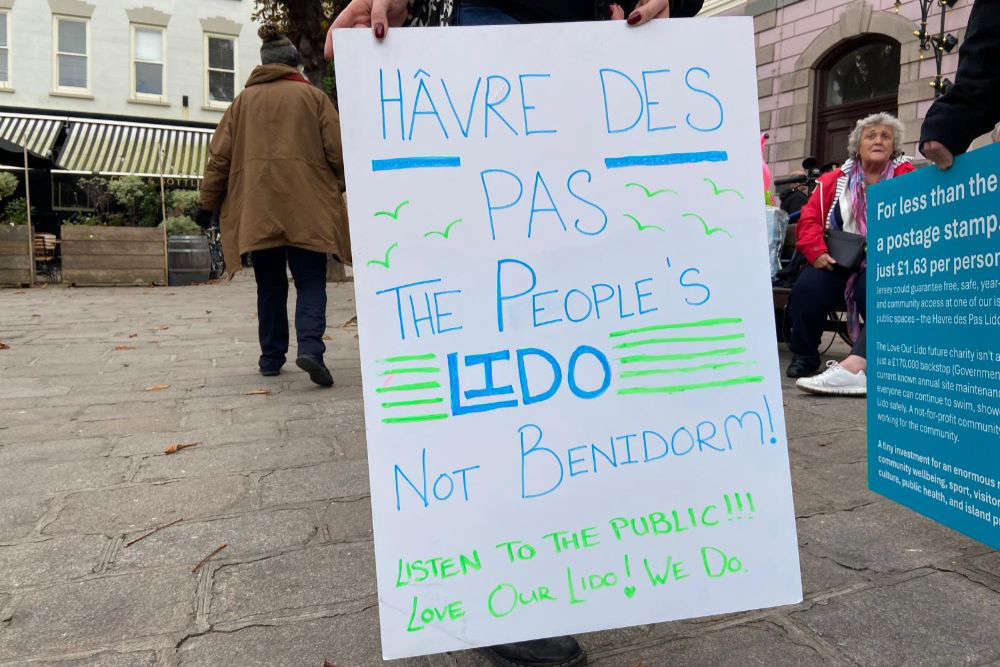 HÂVRE DES
PAS
THE PEOPLE'S
LIDO
NOT BENIDORM!
LISTEN TO THE PUBLIC!!!
LOVE OUR LIDO! WE DO.
For less than the
a postage stamp
just £1.63 per person
Jersey could guarantee free, safe, year-
and community access at one of our
public spaces – the Havre des Pas Lido
The Love Our Lido future charity isn't
just a £170,000 backstop (Government
current known annual site maintenance
everyone can continue to swim,
Lido safely. A not-for-profit community
working for the community.
A tiny investment for an enormous
community wellbeing, sport, visitor
culture, public health, and island